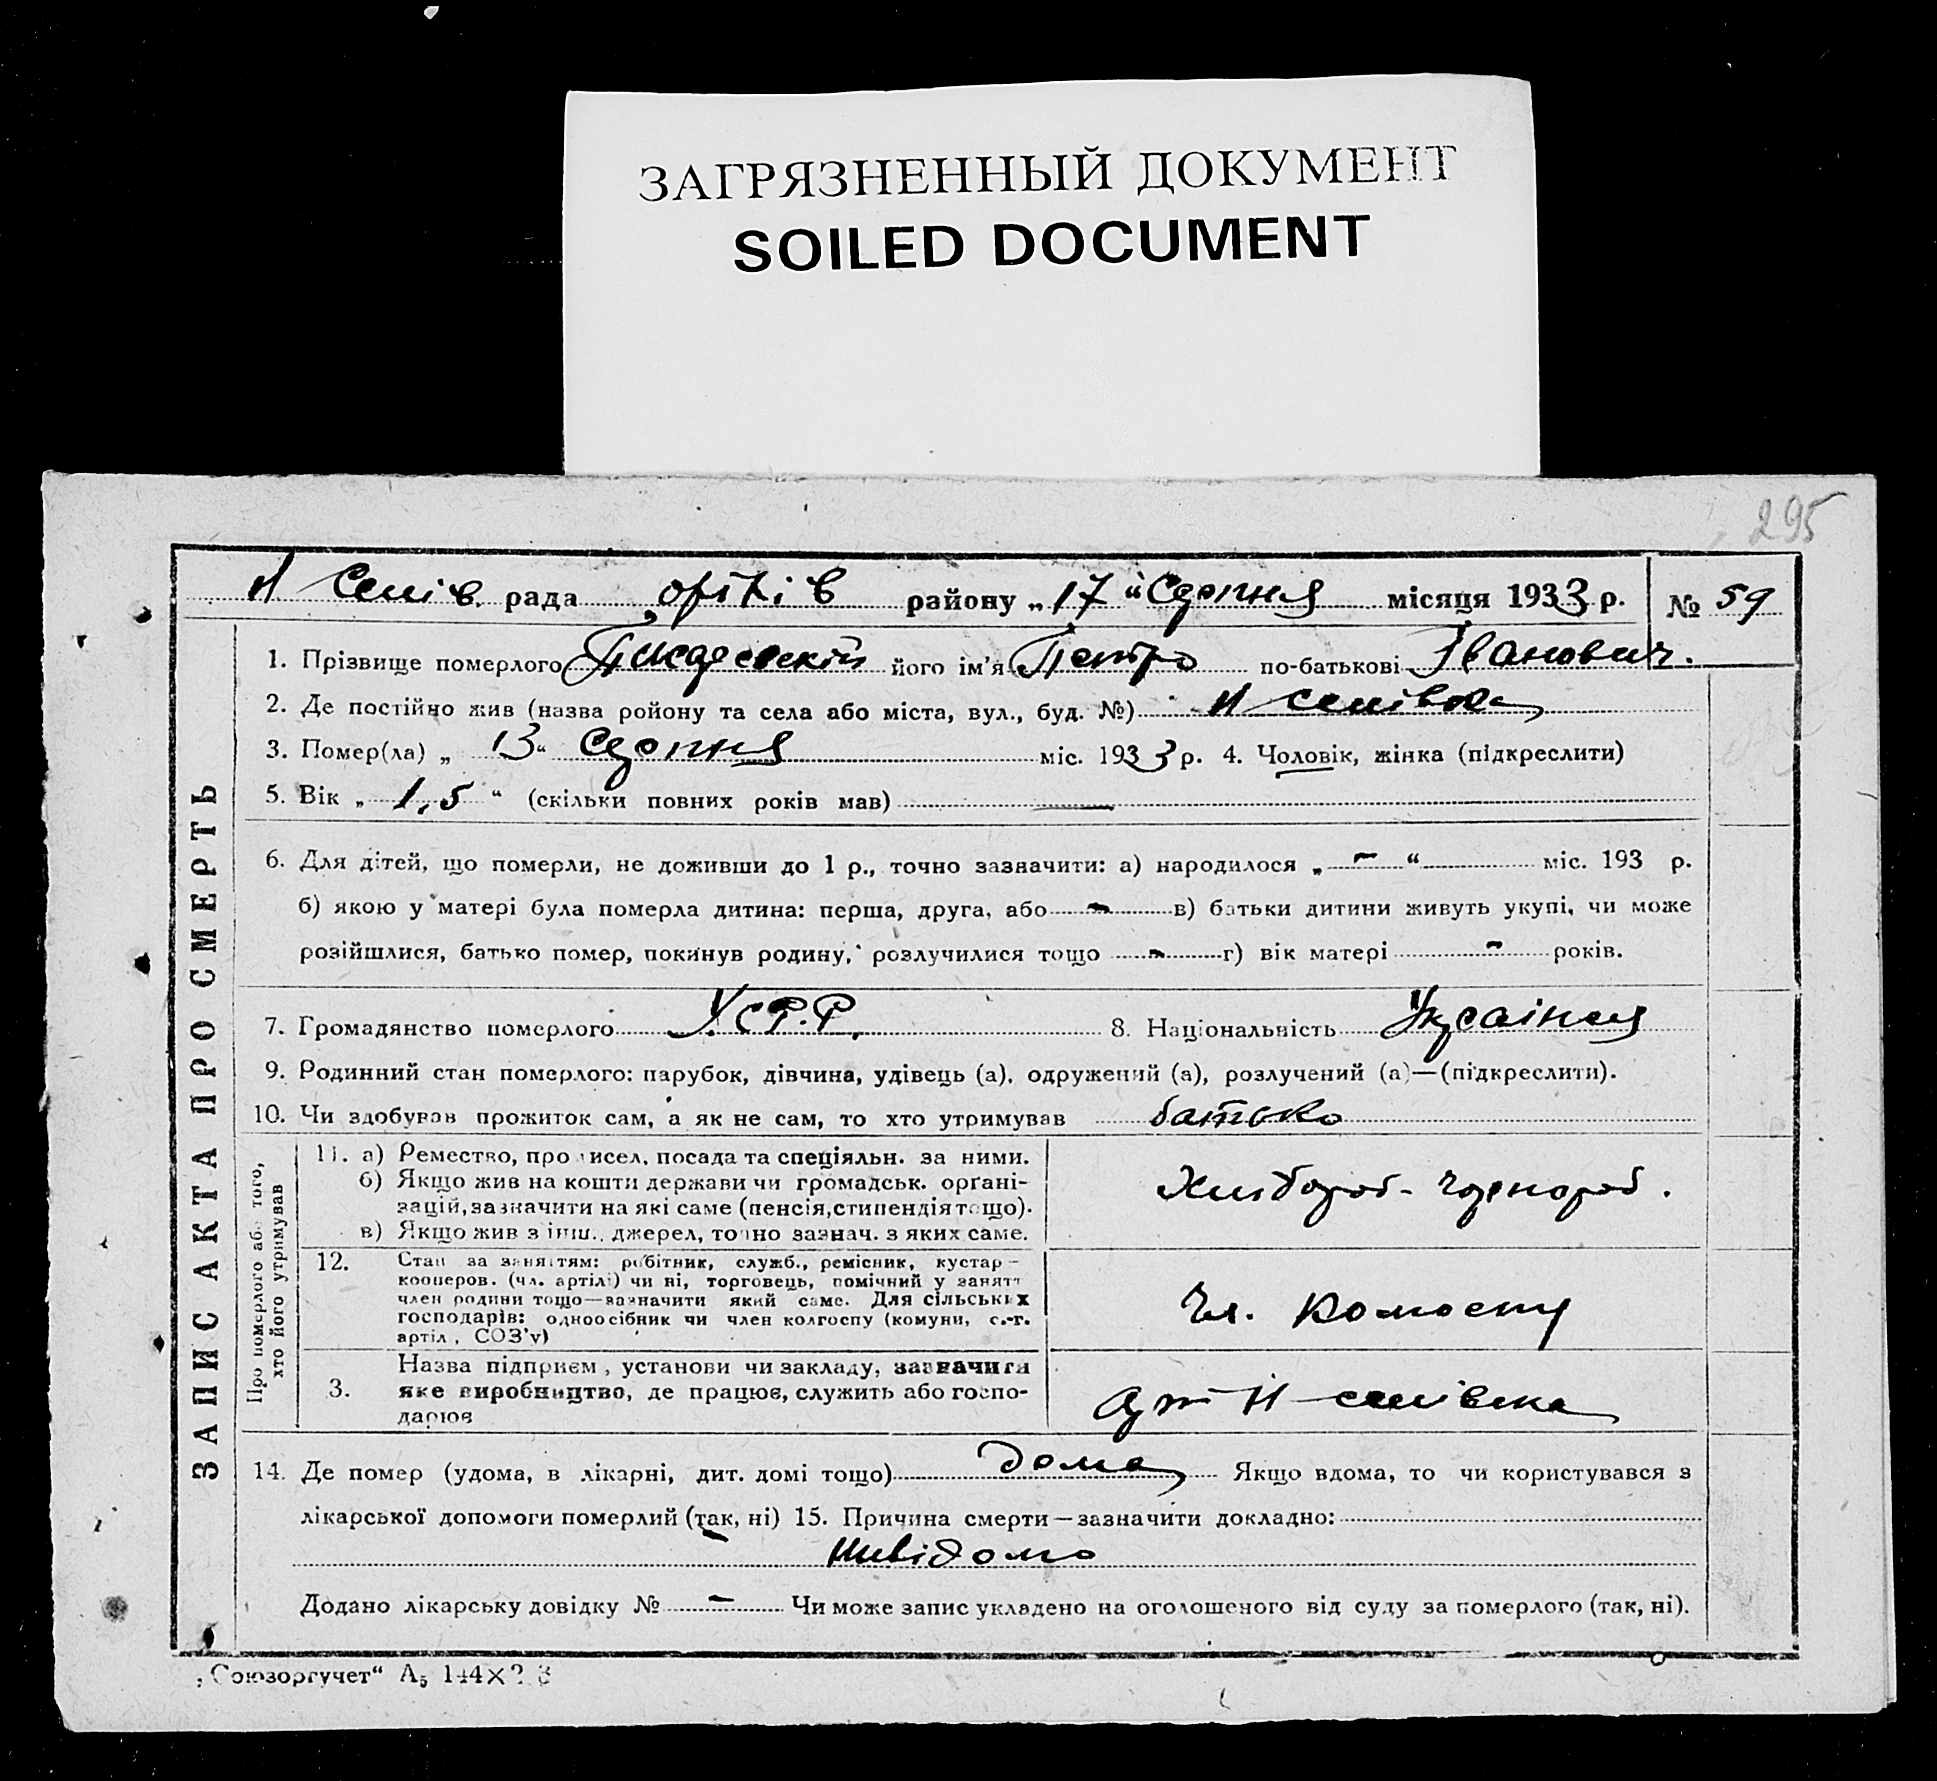 ЗАГРЯЗНЕННЫЙ ДОКУМЕНТ
SOILED DOCUMENT
295
рада району „ 17 " Серпня місяця 1933 р. № 59
ЗАПИС АКТА ПРО СМЕРТЬ
1. Прізвище померлого його ім'я Петро по-батькові Іванович.
2. Де постійно жив (назва ройону та села або міста, вул., буд. №)
3. Помер(ла) „ 13 " Серпня міс. 1933 р. 4. Чоловік, жінка (підкреслити)
5. Вік „ 1,5 " (скільки повних років мав) —
6. Для дітей, що померли, не доживши до 1 р., точно зазначити: а) народилося „ – " міс. 193 р.
б) якою у матері була померла дитина: перша, друга, або – в) батьки дитини живуть укупі, чи може
розійшлися, батько помер, покинув родину, розлучилися тощо – г) вік матері – років.
7. Громадянство померлого УСР.Р. 8. Національність
9. Родинний стан померлого: парубок, дівчина, удівець (а), одружений (а), розлучений (а)—(підкреслити).
10. Чи здобував прожиток сам, а як не сам, то хто утримував батько
Про померлого або того, хто його утримував
11. а) Ремество, промисел, посада та спеціяльн. за ними.
б) Якщо жив на кошти держави чи громадськ. орґані-
зацій, зазначити на які саме (пенсія, стипендія тощо).
в) Якщо жив з інш., джерел, точно зазнач. з яких саме.
Хлібороб - чорнороб.
12. Стан за заняттям: робітник, служб., ремісник, кустар –
кооперов. (чл. артілі) чи ні, торговець, помічний у занятт
член родини тощо—зазначити який саме. Для сільських
господарів: одноосібник чи член колгоспу (комуни, с.-г.
артіл, СОЗ'у)
Чл. Колгоспу
3. Назва підприєм, установи чи закладу, зазначити
яке виробництво, де працює, служить або госпо-
дарює
14. Де помер (удома, в лікарні, дит. домі тощо) дома Якщо вдома, то чи користувався з
лікарської допомоги померлий (так, ні) 15. Причина смерти — зазначити докладно:
Невідомо
Додано лікарську довідку № – Чи може запис укладено на оголошеного від суду за померлого (так, ні).
„Союзоргучет" А5